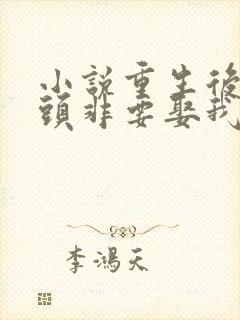 小說重生後
頭非要娶我
李鴻天